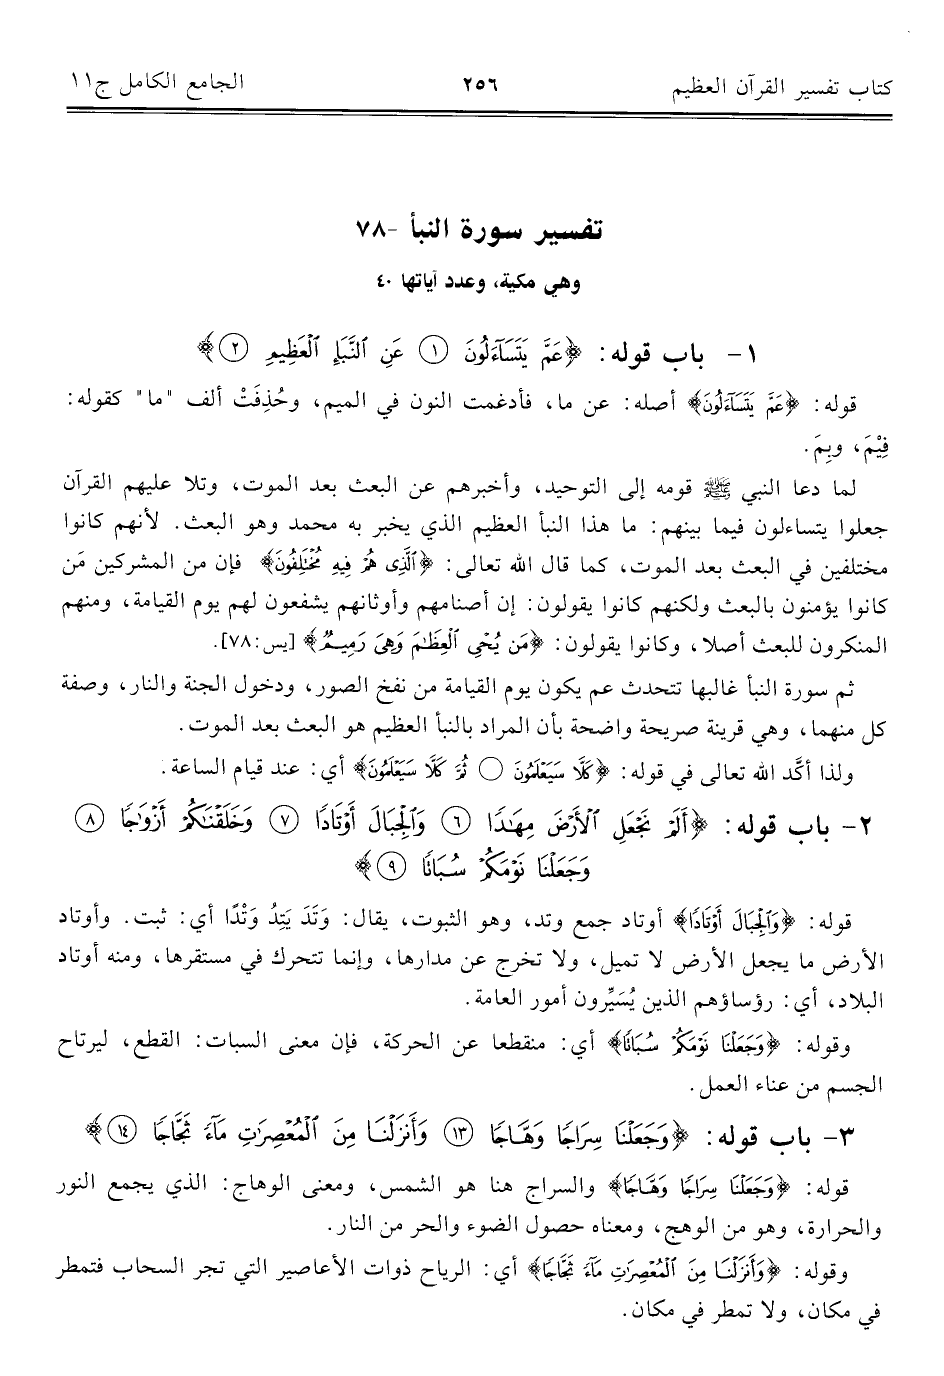 كتاب تفسير القرآن العظيم ٢٥٦ الجامع الكامل ج١١
تفسير سورة النبأ -٧٨
وهي مكية، وعدد آياتها ٤٠
١- باب قوله: ﴿عَمَّ يَتَسَآءَلُونَ ١ عَنِ ٱلنَّبَإِ ٱلۡعَظِيمِ ٢﴾
قوله: ﴿عَمَّ يَتَسَآءَلُونَ﴾ أصله: عن ما، فأدغمت النون في الميم، وحُذِفَتْ ألف "ما" كقوله:
فِيْمَ، وبِمَ.
لما دعا النبي ﷺ قومه إلى التوحيد، وأخبرهم عن البعث بعد الموت، وتلا عليهم القرآن
جعلوا يتساءلون فيما بينهم: ما هذا النبأ العظيم الذي يخبر به محمد وهو البعث. لأنهم كانوا
مختلفين في البعث بعد الموت، كما قال الله تعالى: ﴿ٱلَّذِى هُمۡ فِيهِ مُخۡتَلِفُونَ﴾ فإن من المشركين مَن
كانوا يؤمنون بالبعث ولكنهم كانوا يقولون: إن أصنامهم وأوثانهم يشفعون لهم يوم القيامة، ومنهم
المنكرون للبعث أصلا، وكانوا يقولون: ﴿مَن يُحۡىِ ٱلۡعِظَٰمَ وَهِىَ رَمِيمٌ﴾ [يس:٧٨].
ثم سورة النبأ غالبها تتحدث عم يكون يوم القيامة من نفخ الصور، ودخول الجنة والنار، وصفة
كل منهما، وهي قرينة صريحة واضحة بأن المراد بالنبأ العظيم هو البعث بعد الموت.
ولذا أكَّد الله تعالى في قوله: ﴿كَلَّا سَيَعۡلَمُونَ ۝ ثُمَّ كَلَّا سَيَعۡلَمُونَ﴾ أي: عند قيام الساعة.
٢- باب قوله: ﴿أَلَمۡ نَجۡعَلِ ٱلۡأَرۡضَ مِهَٰدًا ٦ وَٱلۡجِبَالَ أَوۡتَادًا ٧ وَخَلَقۡنَٰكُمۡ أَزۡوَٰجًا ٨
وَجَعَلۡنَا نَوۡمَكُمۡ سُبَاتًا ٩﴾
قوله: ﴿وَٱلۡجِبَالَ أَوۡتَادًا﴾ أوتاد جمع وتد، وهو الثبوت، يقال: وَتَدَ يَتِدُ وَتْدًا أي: ثبت. وأوتاد
الأرض ما يجعل الأرض لا تميل، ولا تخرج عن مدارها، وإنما تتحرك في مستقرها، ومنه أوتاد
البلاد، أي: رؤساؤهم الذين يُسَيِّرون أمور العامة.
وقوله: ﴿وَجَعَلۡنَا نَوۡمَكُمۡ سُبَاتًا﴾ أي: منقطعا عن الحركة، فإن معنى السبات: القطع، ليرتاح
الجسم من عناء العمل.
٣- باب قوله: ﴿وَجَعَلۡنَا سِرَاجًا وَهَّاجًا ١٣ وَأَنزَلۡنَا مِنَ ٱلۡمُعۡصِرَٰتِ مَآءً ثَجَّاجًا ١٤﴾
قوله: ﴿وَجَعَلۡنَا سِرَاجًا وَهَّاجًا﴾ والسراج هنا هو الشمس، ومعنى الوهاج: الذي يجمع النور
والحرارة، وهو من الوهج، ومعناه حصول الضوء والحر من النار.
وقوله: ﴿وَأَنزَلۡنَا مِنَ ٱلۡمُعۡصِرَٰتِ مَآءً ثَجَّاجًا﴾ أي: الرياح ذوات الأعاصير التي تجر السحاب فتمطر
في مكان، ولا تمطر في مكان.